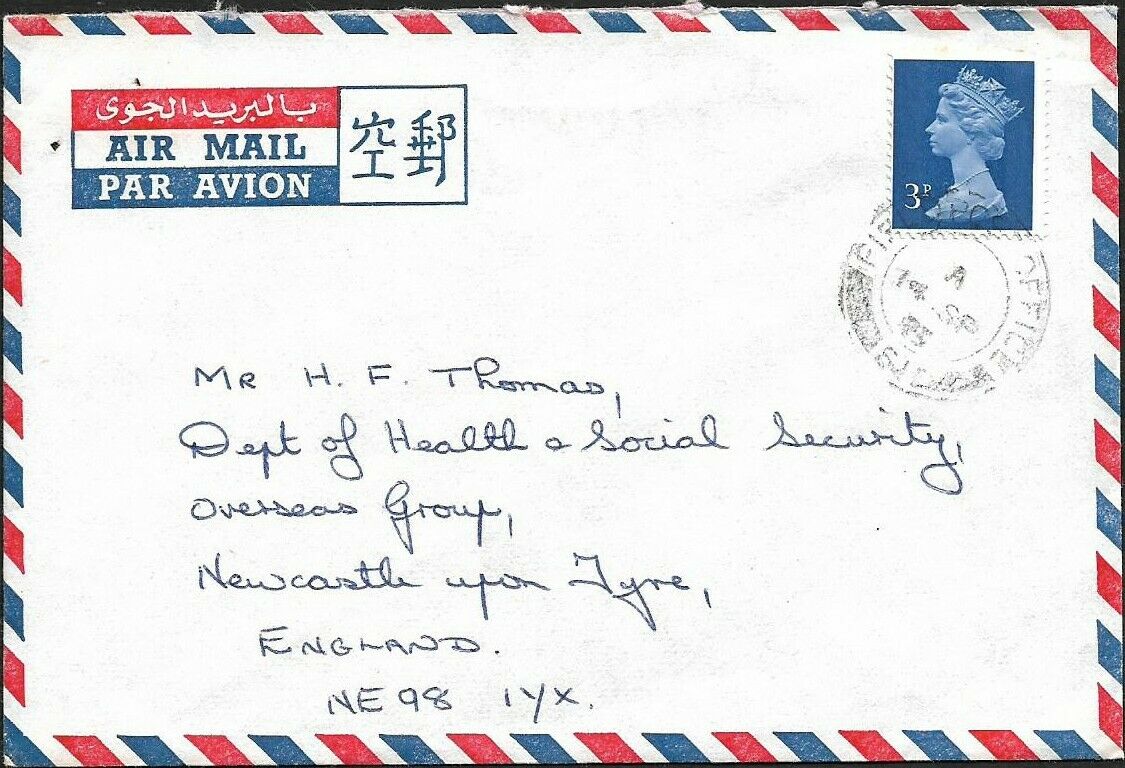 بالبريد الجوى
AIR MAIL
PAR AVION
空郵
3P
OFFICE
Mr H. F. Thomas,
Dept of Health & Social Security,
Overseas Group,
Newcastle upon Tyne,
ENGLAND.
NE98 1YX.